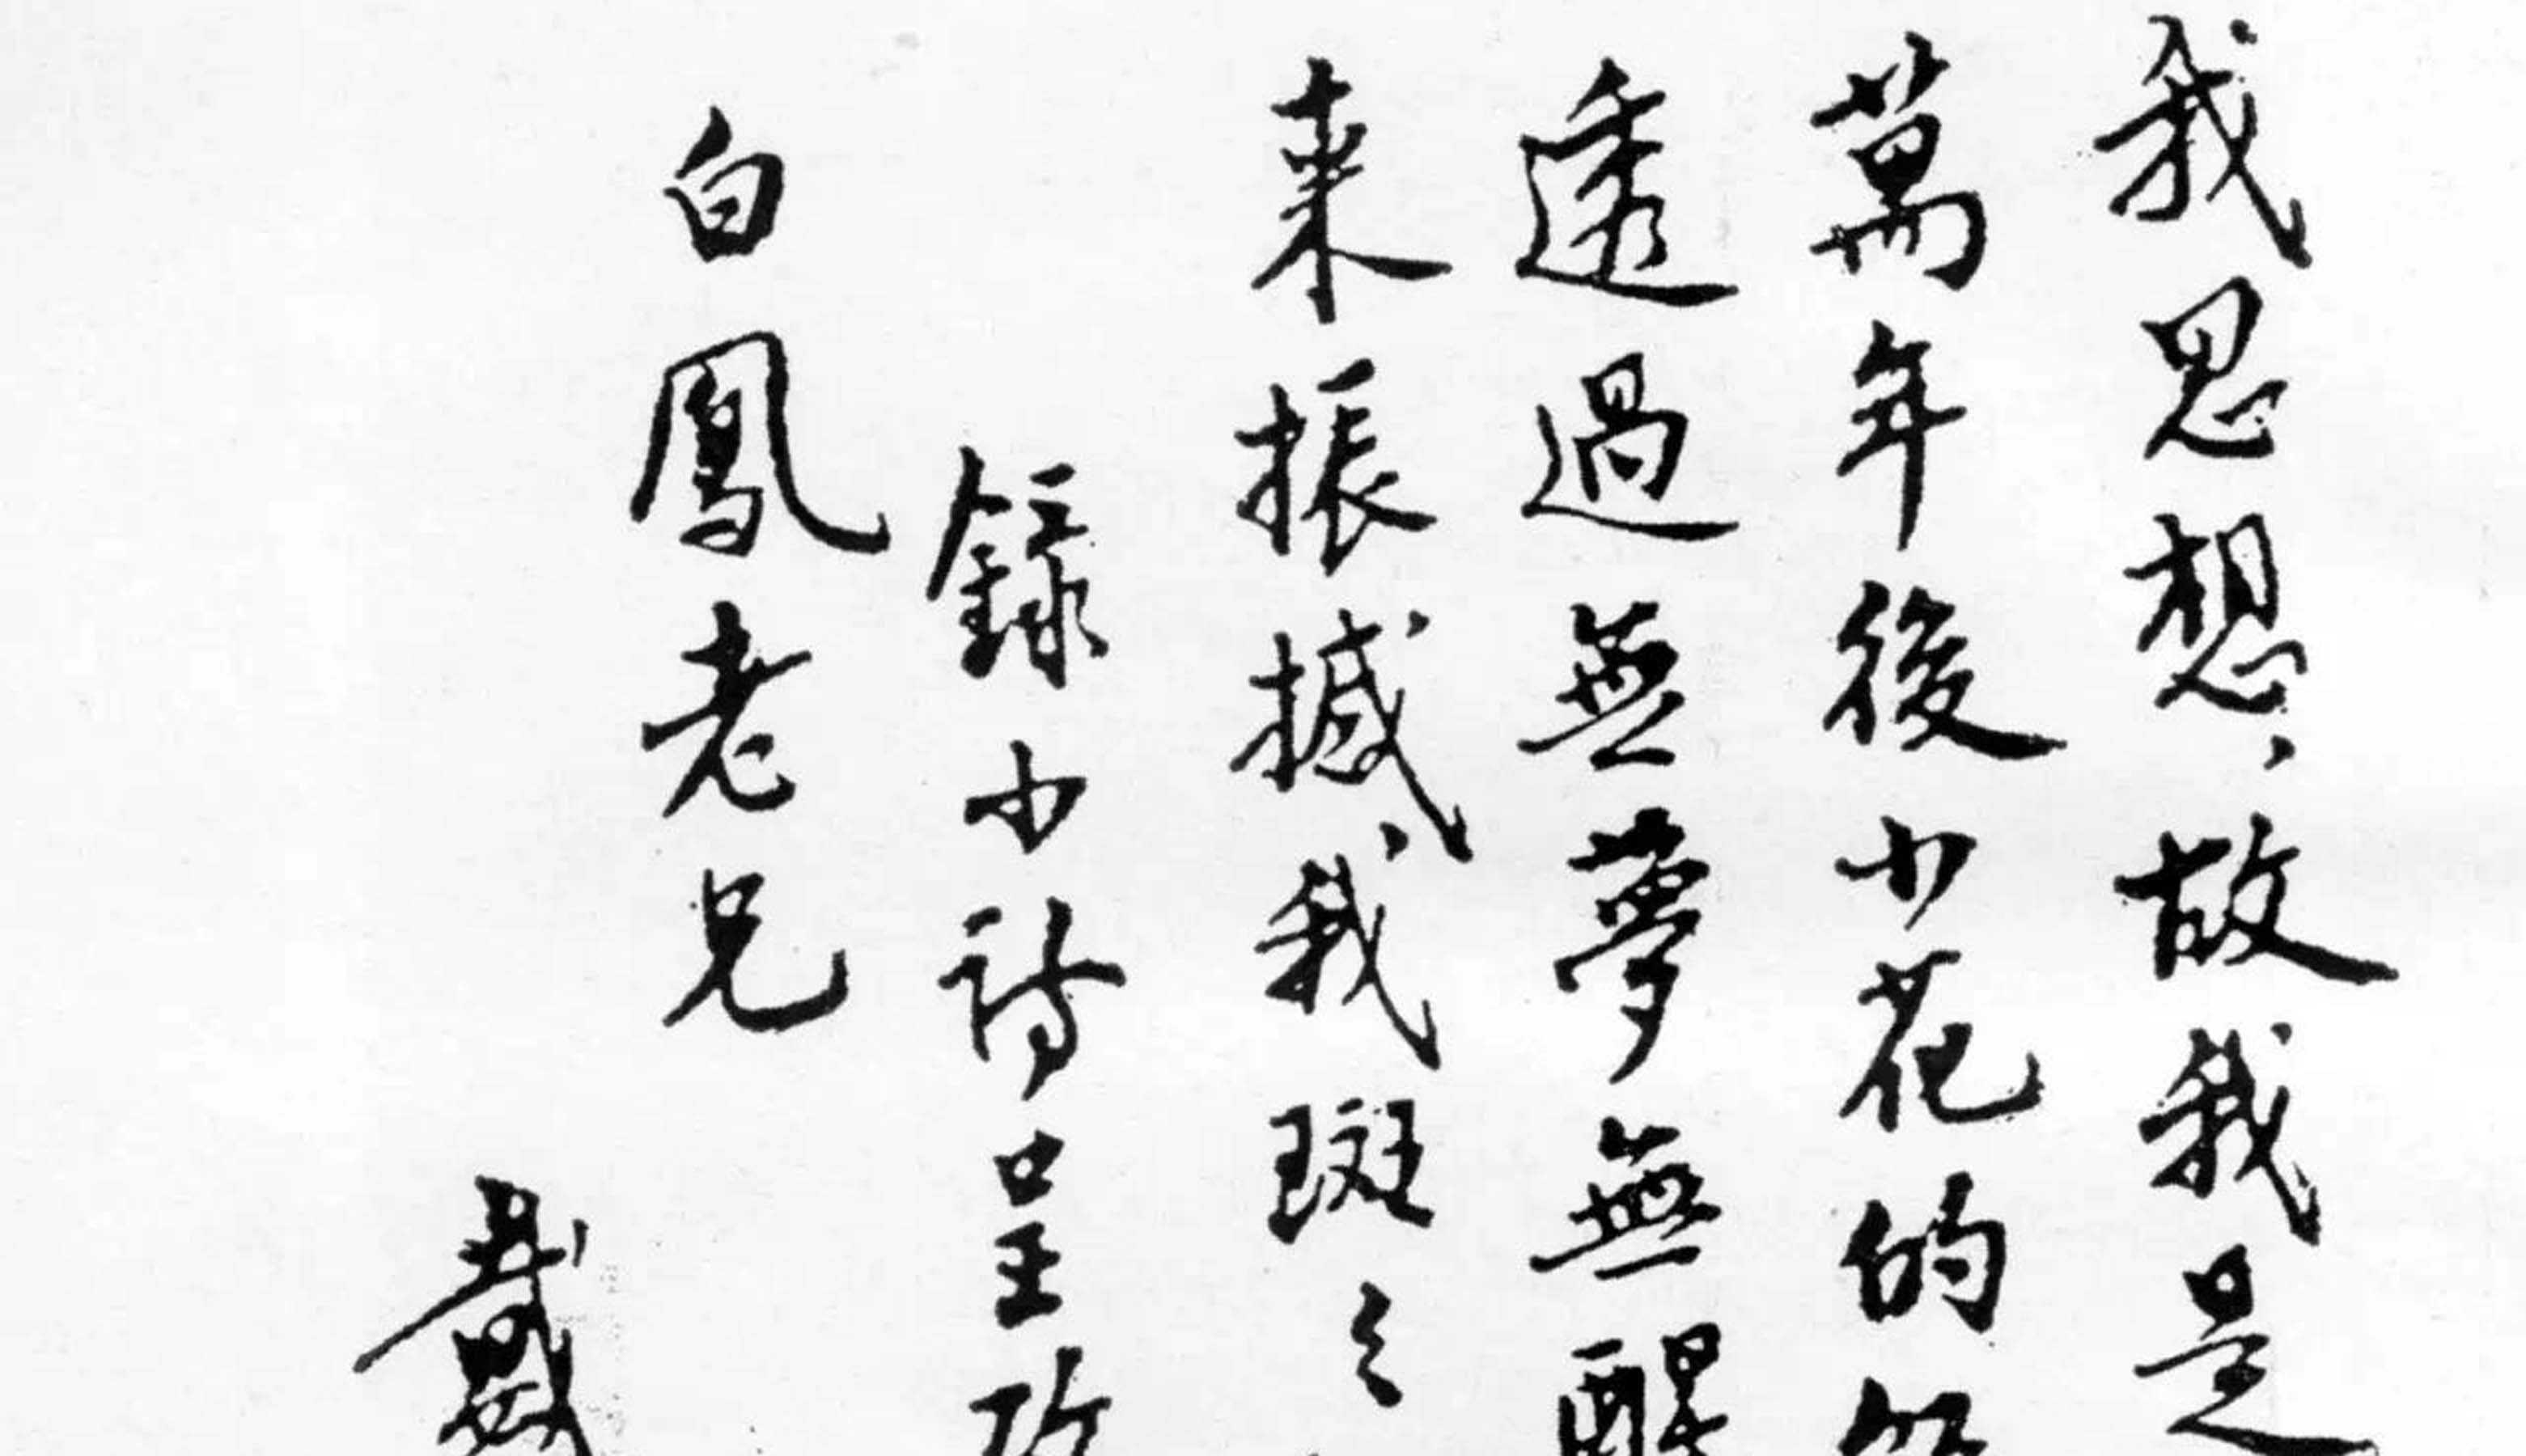 我思想，故我是
萬年後小花的
透過無夢無醒
来振撼我斑々
錄小詩呈改
白鳳老兄
戴